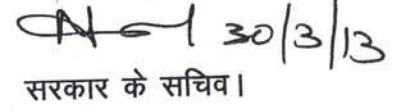 30/3/13
सरकार के सचिव।